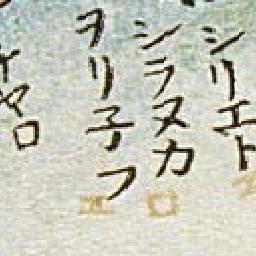 シリエト
シラヌカ
ヲリ子フ
ヤマロ